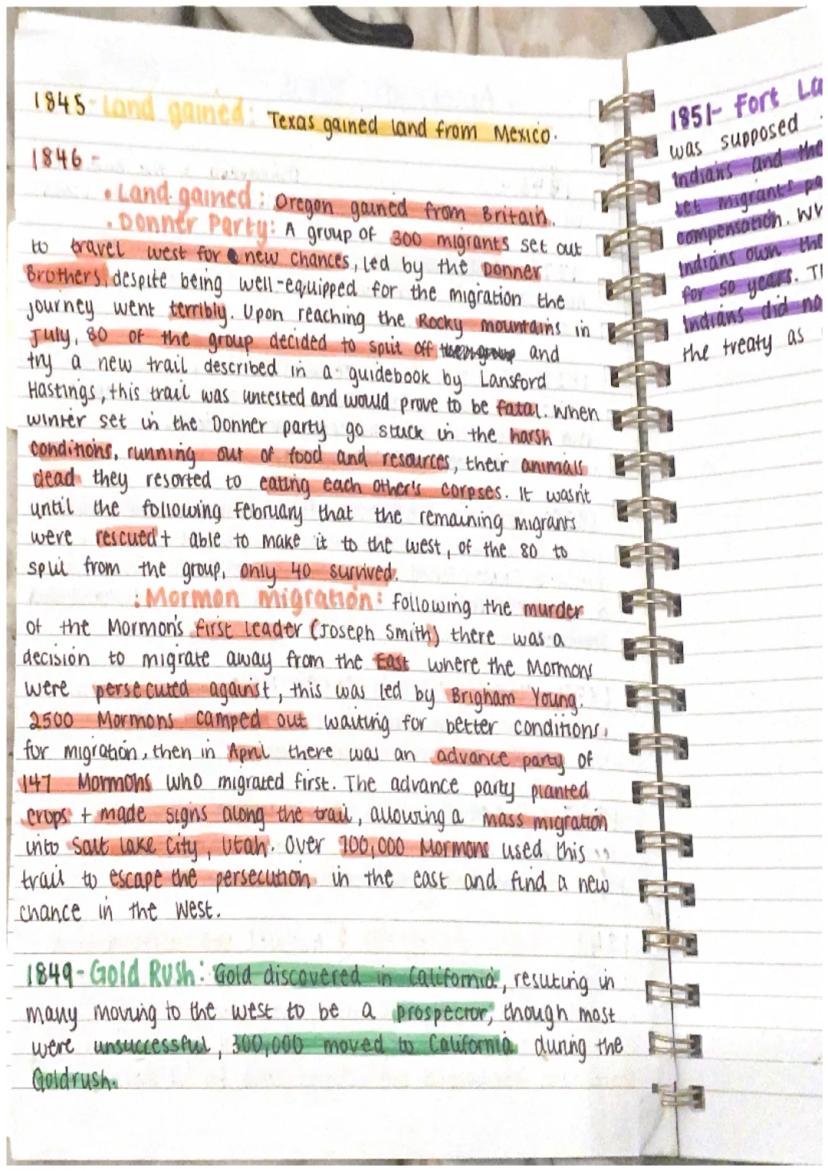 1845 - Land gained: Texas gained land from Mexico.
1846 -
• Land gained: Oregon gained from Britain.
• Donner Party: A group of 300 migrants set out
to travel west for new chances, led by the Donner
Brothers, despite being well-equipped for the migration the
journey went terribly. Upon reaching the Rocky mountains in
July, 80 of the group decided to split off and
try a new trail described in a guidebook by Lansford
Hastings, this trail was untested and would prove to be fatal. When
winter set in the Donner party go stuck in the harsh
conditions, running out of food and resources, their animals
dead they resorted to eating each other's corpses. It wasn't
until the following february that the remaining migrants
were rescued + able to make it to the west, of the 80 to
split from the group, only 40 survived.
• Mormon migration: following the murder
of the Mormon's first leader (Joseph Smith) there was a
decision to migrate away from the East where the Mormons
were persecuted against, this was led by Brigham Young.
2500 Mormons camped out waiting for better conditions
for migration, then in April there was an advance party of
147 Mormons who migrated first. The advance party planted
crops + made signs along the trail, allowing a mass migration
into Salt Lake City, Utah. Over 100,000 Mormons used this
trail to escape the persecution in the east and find a new
chance in the west.
1849 - Gold Rush: Gold discovered in California, resuting in
many moving to the west to be a prospector, though most
were unsuccessful, 300,000 moved to California during the
Goldrush.
1851- Fort La
was supposed
Indians and the
let migrants pa
compensation. Wh
Indians own the
for 50 years. Th
Indians did no
the treaty as